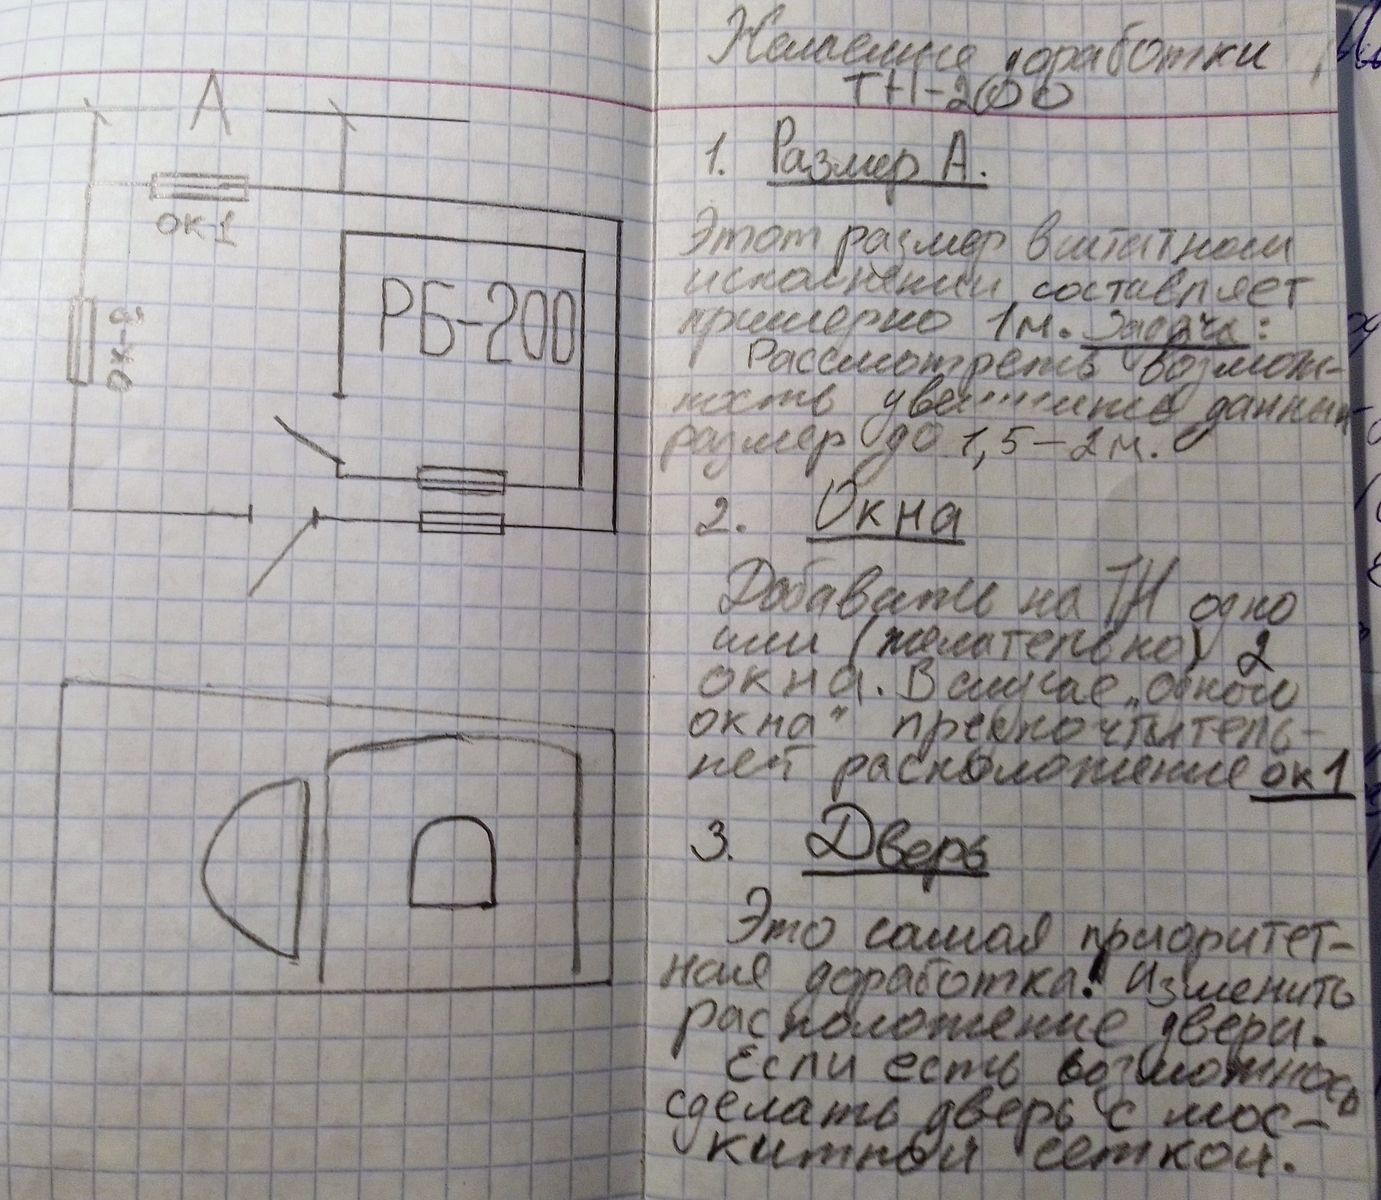 А
ок1
РБ-200
ок-2
Желаемые доработки
ТН-200
1. Размер А.
Этот размер в штатном
исполнении составляет
примерно 1м. Задача:
Рассмотреть возмож-
ность увеличить данный
размер до 1,5-2м.
2. Окна
Добавить на ТН одно
или (желательно) 2
окна. В случае „одного
окна" предпочтитель-
ней расположение ок1
3. Дверь
Это самая приоритет-
ная доработка. Изменить
расположение двери.
Если есть возможность
сделать дверь с мос-
китной сеткой.